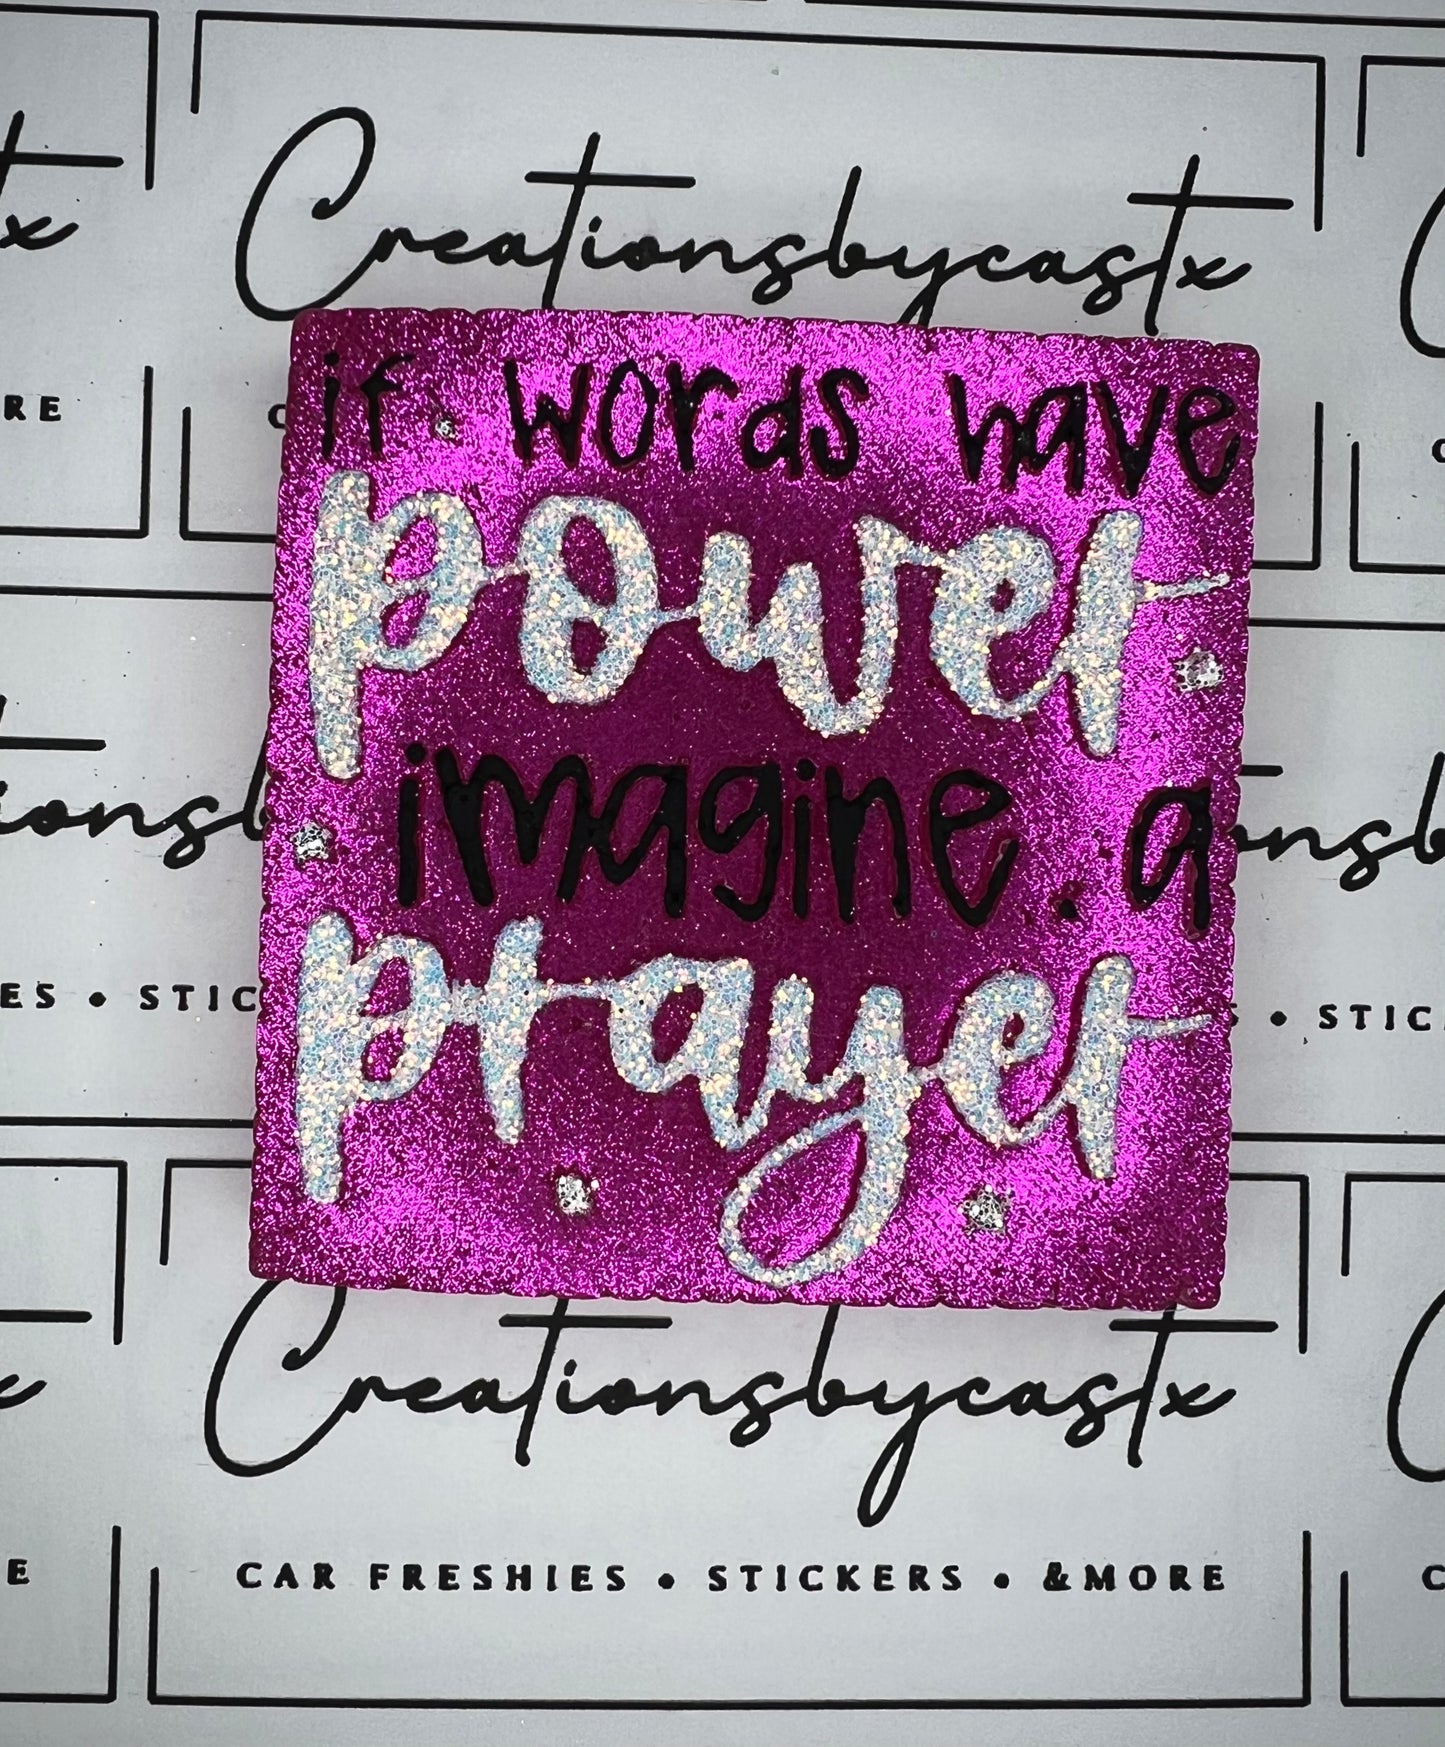 Creationsbycastx
RE
if words have
power
imagine a
prayer
ES • STIC
• STIC
Creationsbycastx
CAR FRESHIES • STICKERS • &MORE
E